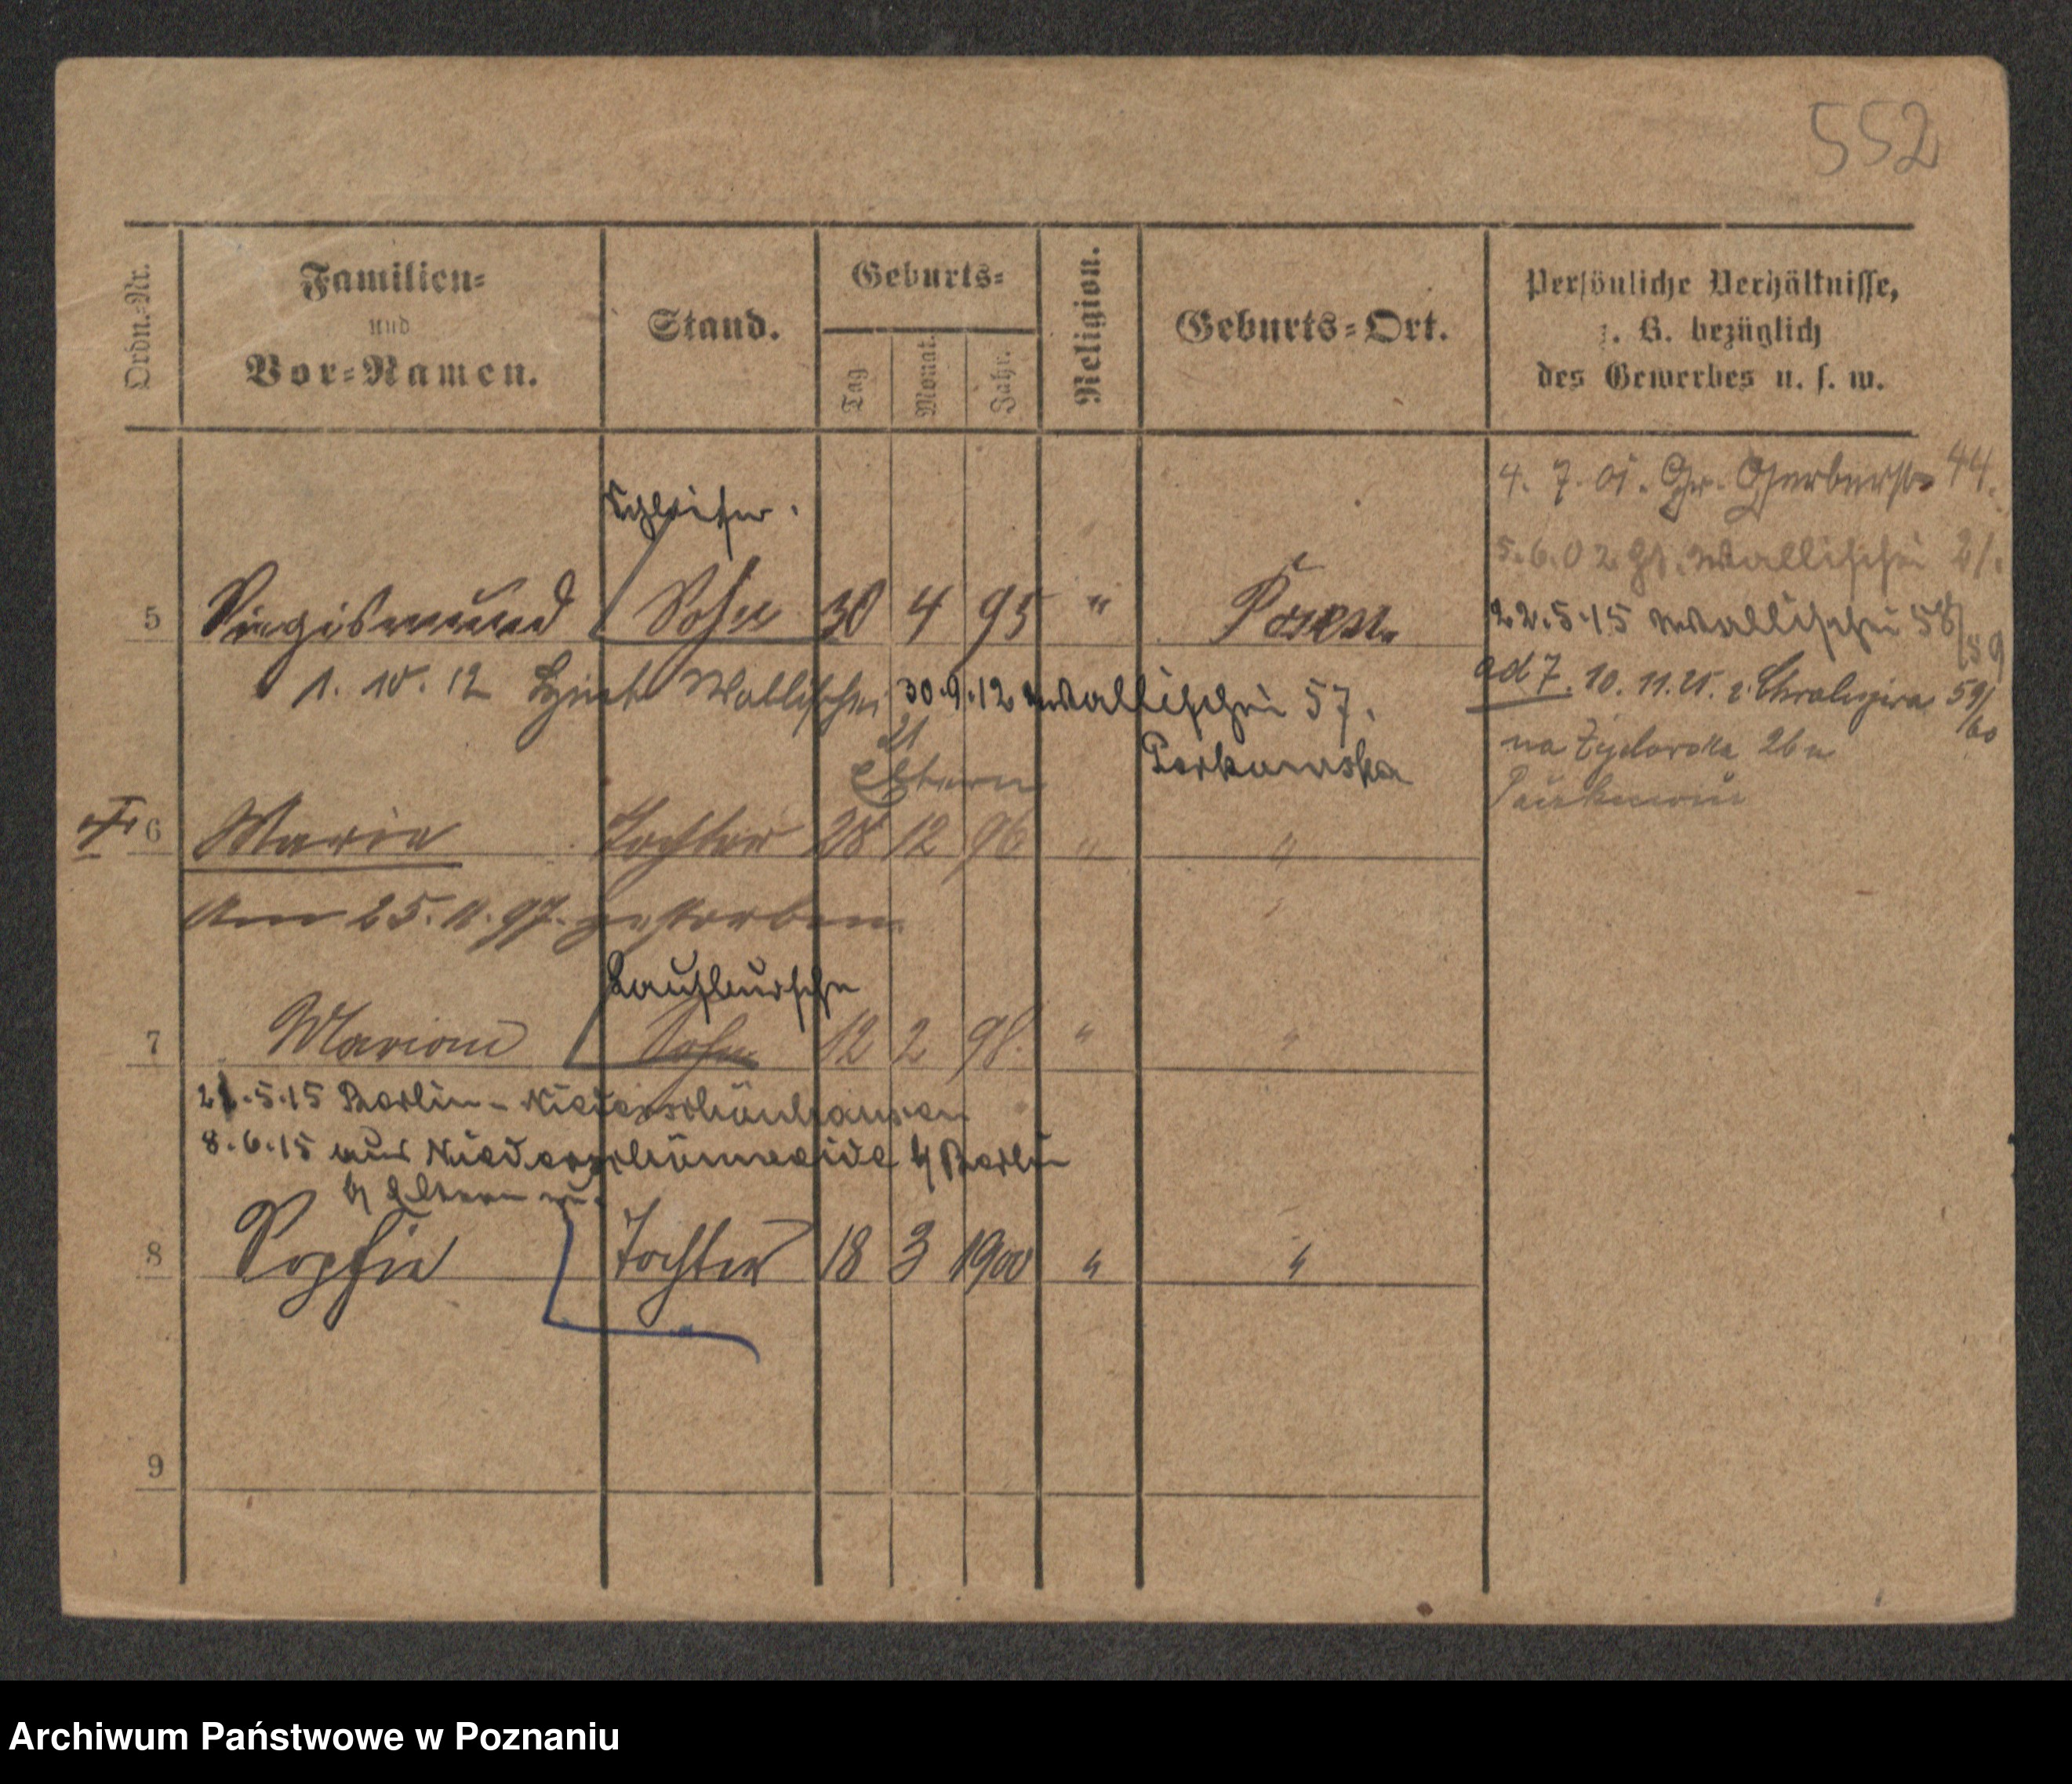 552
Ordn.-Nr.
Familien-
und
Vor-Namen.
Stand.
Geburts-
Tag
Monat.
Jahr.
Religion.
Geburts-Ort.
Persönliche Verhältnisse,
z. B. bezüglich
des Gewerbes u. s. w.
4. 7. 01. Gr. Gerberstr 44.
5.6.02 Wallischei 21.
22.5.15 Wallischei 58/59
ad 7. 10. 11. 21. z Chwaliszewa 59/60
na Żydowska 26
Schleifer.
5 Siegismund Sohn 30 4 95 " Posen
1. 10. 12 Wallischei 30.9.12 Wallischei 57.
21
Eltern
6 Marie Tochter 28 12 96 " "
Am 25. 11. 97. gestorben
Laufbursche
7 Marian Sohn 12 2 98. " "
21.5.15 Berlin-Niederschönhausen
8.6.15 aus Niederschönweide b/ Berlin
b/ Eltern
8 Sophie Tochter 18 3 1900 " "
9
Archiwum Państwowe w Poznaniu